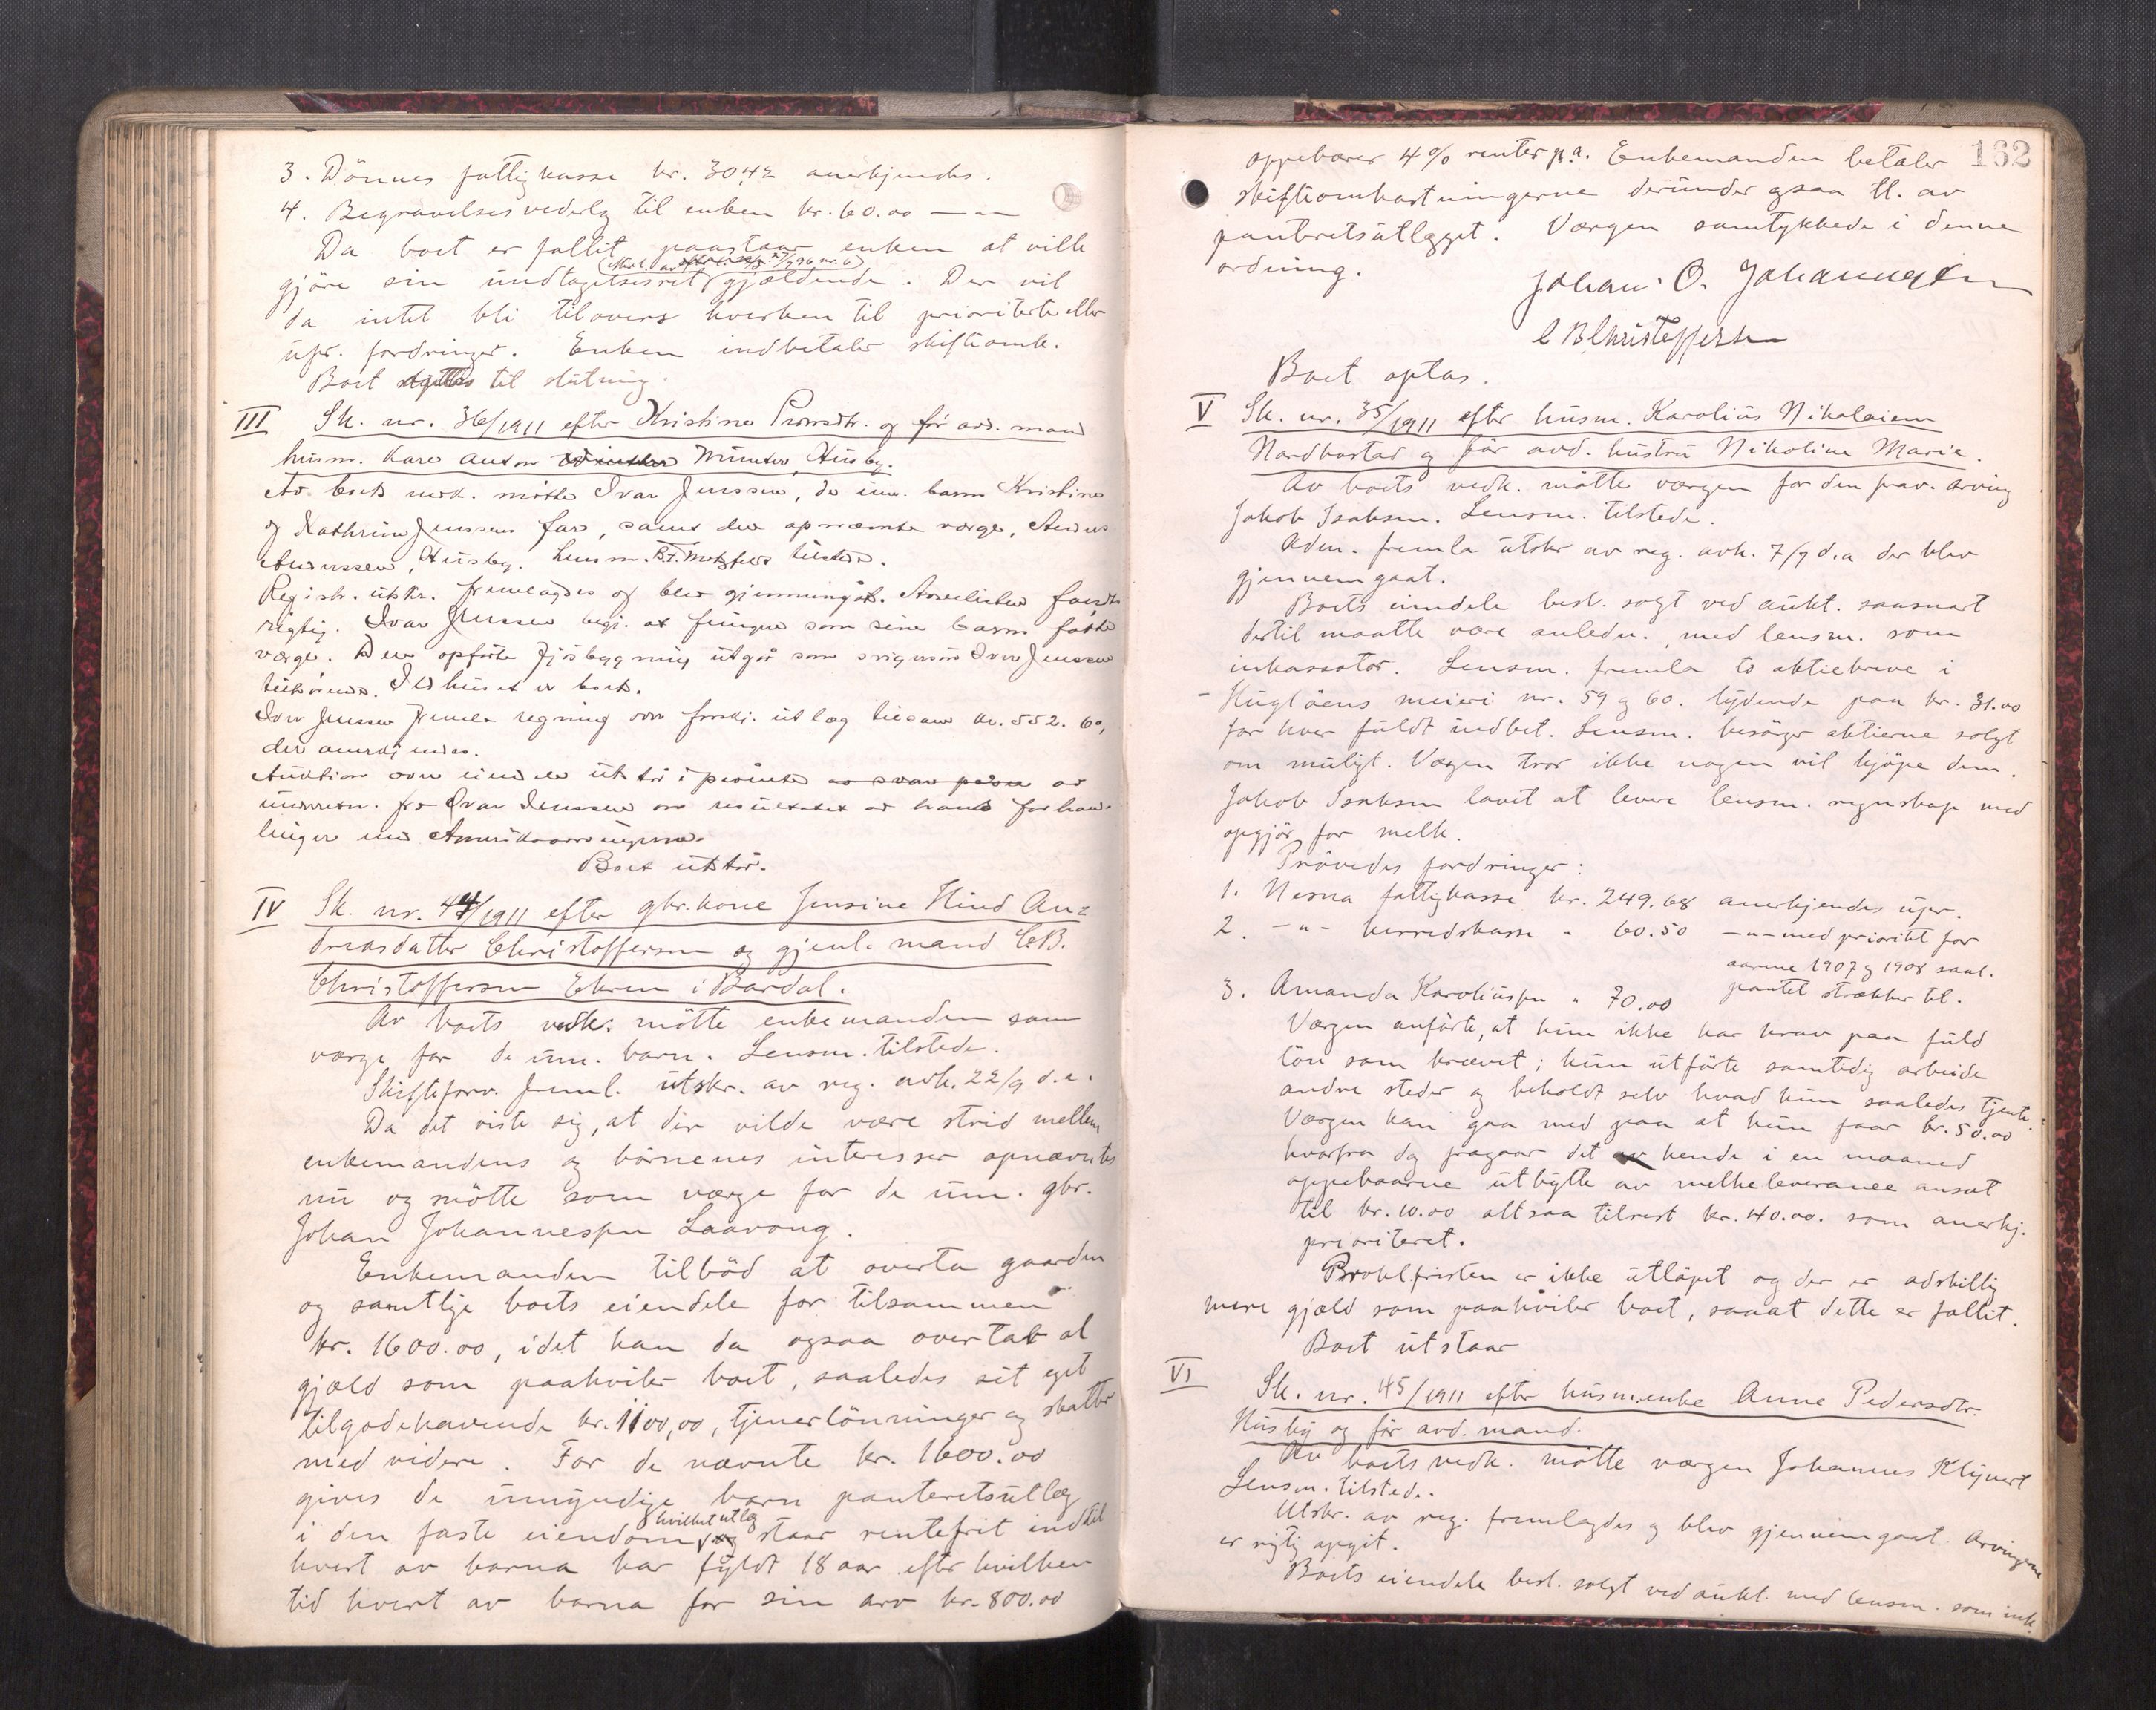 3. Dönnes fattigkasse kr. 30,42 anerkjendes.
4. Begravelsesvederlg til enken kr. 60.00 — „ —
Da boet er fallit paastaar enken at ville
gjöre sin undtagelsesret gjældende. Der vil
da intet bli tilovers hverken til prioriterte eller
upr. fordringer. Enken indbetaler skifteomk.
Boet til slutning.
III Sk. nr. 36/1911 efter Kristine og för avd. mand
husm. Kare Anton Winther Husby.
Av boets vedk. mötte Ivar Jenssen, de um. barn Kristine
og Kathrine Jenssens far, samt den opnævnte værge, Anders
Anderssen, Husby. Lensm. B. J. Motzfeldt tilstede.
Registr. utskr. fremlagdes og blev gjennemgåt. Arvelisten fandts
rigtig. Ivar Jenssen begj. at fungere som sine barns fødte
værge. Den opförte fjösbygning utgår som svigersøn Ivar Jenssen
tilhørende. Ildhuset er boets.
Ivar Jenssen fremla regning over forskj. utlæg tilsam. kr. 552.60,
der anerkjendes.
Auktion over eiendele utstår i påvente av
underretn. fra Ivar Jenssen om resultatet av hans forhand-
linger med Amerikaarvingerne.
Boet utstår.
IV Sk. nr. 44/1911 efter gbr.kone Jensine Hind An=
dreasdatter Christoffersen og gjenl. mand C.B.
Christoffersen Ekren i Bardal.
Av boets vedk. mötte enkemanden som
værge for de um. barn. Lensm. tilstede.
Skifteforv. freml. utskr. av reg. avh. 22/9 d.a.
Da det viste sig, at der vilde være strid mellem
enkemandens og börnenes interesser opnævntes
nu og mötte som værge for de um. gbr.
Johan Johannesen Laavong.
Enkemanden tilböd at overta gaarden
og samtlige boets eiendele for tilsammen
kr. 1600.00, idet han da ogsaa overtar al
gjæld som paahviler boet, saaledes sit eget
tilgodehavende kr. 1100,00, tjenerlönninger og skatter
med videre. For de nævnte kr. 1600.00
gives de umyndige barn panteretsutlæg
i den faste eiendom, hvilket utlæg staar rentefrit indtil
hvert av barna har fyldt 18 aar efter hvilken
tid hvert av barna for sin arv kr. 800.00
132
oppebærer 4% renter p.a. Enkemanden betaler
skifteomkostningerne derunder ogsaa tl. av
panteretsutlægget. Værgen samtykkede i denne
ordning.
Johan O. Johannesen
C B Christoffersen
Boet optas.
V Sk. nr. 35/1911 efter husm. Karolius Nikolaisen
Nordbostad og för avd. hustru Nikoline Marie.
Av boets vedk. mötte værgen for den frav. arving
Jakob Isaksen. Lensm. tilstede.
Adm. fremla utskr av reg. avh. 7/9 d.a der blev
gjennemgaat.
Boets inndele besl. solgt ved aukt. saasnart
dertil maatte være anledn. med lensm. som
inkassator. Lensm. fremla to aktiebreve i
Hugløens meieri nr. 59 g 60. lydende paa kr. 31.00
for hver fuldt indbet. Lensm. besörger aktierne solgt
om muligt. Værgen tror ikke nogen vil kjöpe dem.
Jakob Isaksen lovet at levere lensm. regnskap med
opgjör for melk.
Prövedes fordringer:
1. Nesna fattigkasse kr. 249.68 anerkjendes upr.
2. — „ — herredskasse „ 60.50 — „ — med prioritet for
aarene 1907 g 1908 saal.
pantet strækker til.
3. Amanda Karoliusen „ 70.00
Værgen anförte, at hun ikke har krav paa fuld
lön som krævet; hun utförte samtidig arbeide
andre steder og beholdt selv hvad hun saaledes tjente.
Værgen kan gaa med paa at hun faar kr. 50.00
hvorfra dg fragaar det av hende i en maaned
oppebaarne utbytte av melkeleveranse ansat
til kr. 10.00 altsaa tilrest kr. 40.00. som anerkj.
prioriteret.
Proklfristen er ikke utlöpet og der er adskillig
mere gjæld som paahviler boet, saaat dette er fallit.
Boet utstaar
VI Sk. nr. 45/1911 efter husm.enke Anne Pedersdtr.
Husby og för avd. mand.
Av boets vedk. mötte værgen Johannes Klyvert
Lensm. tilstede.
Utskr. av reg. fremlagdes g blev gjennemgaat. Arvingene
er rigtig opgit.
Boets eiendele besl. solgt ved aukt. med lensm. som ink.